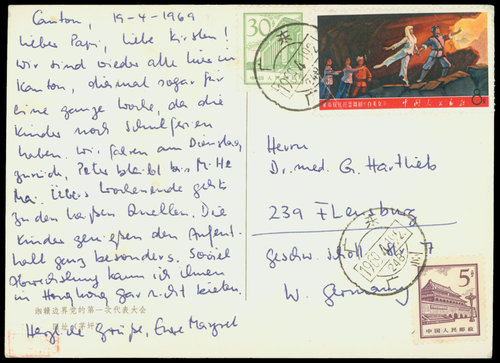 Canton, 19-4-1969
Lieber Papi, liebe Kirsten!
Wir sind wieder alle hier in
Kanton, diesmal sogar für
eine ganze Woche, da die
Kinder noch Schulferien
haben. Wir fahren am Dienstag
zurück, Peter bleibt bis M.
Mai. Übers Wochenende geht's
zu den heißen Quellen. Die
Kinder genießen den Aufent-
halt ganz besonders. Soviel
Abwechslung kann ich ihnen
in Hongkong gar nicht bieten.
Herzliche Grüße, Eure Margret
湘赣边界党的第一次代表大会
30
中国人民邮政
8
中国人民邮政
广
1969.4.
Herrn
Dr. med. G. Hartlieb
239 Flensburg
Geschw. Scholl Str. 7
W. Germany
广
1969.4.
5
中国人民邮政